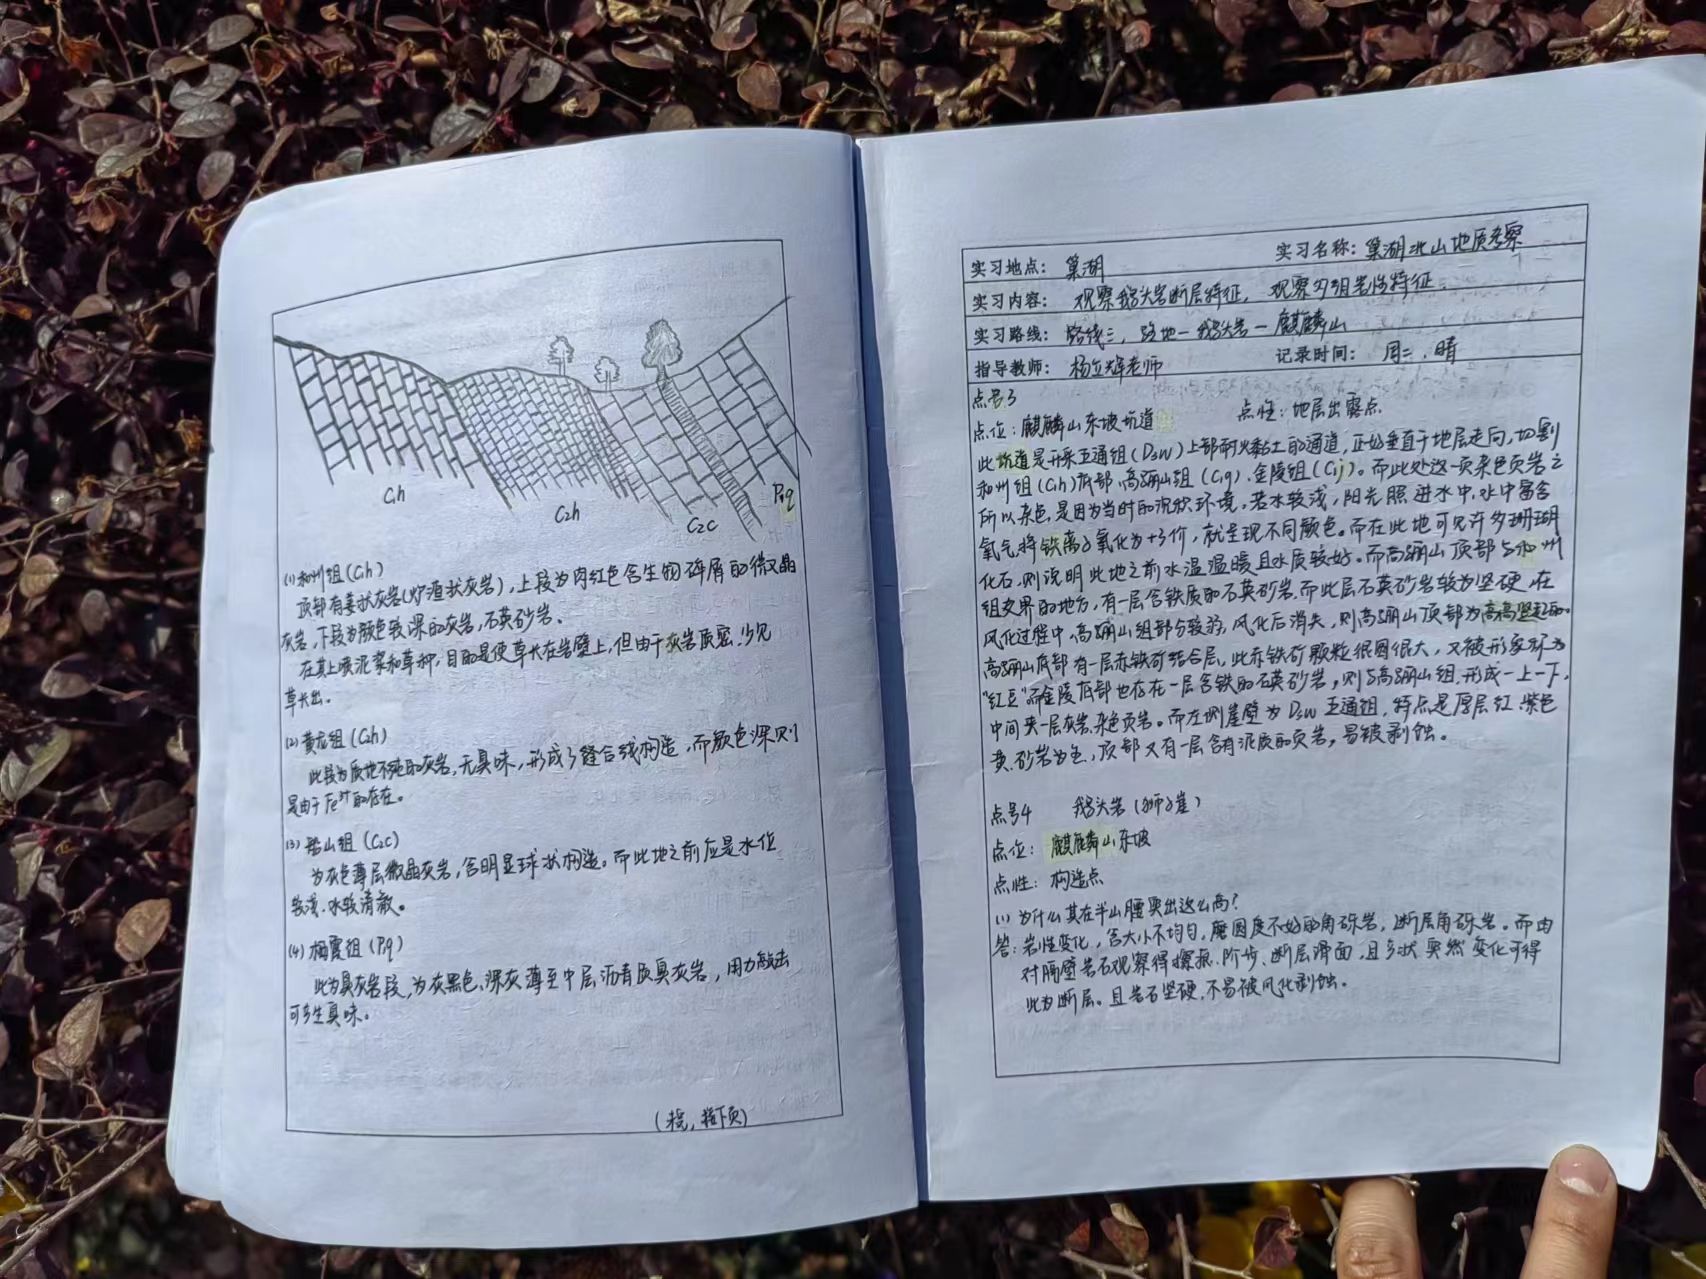 C₁h
C₂h
C₂c
P₁q
(1) 和州组(C₁h)
顶部有姜状灰岩(炉渣状灰岩),上段为肉红色含生物碎屑的微晶
灰岩,下段为颜色较深的灰岩,石英砂岩。
在其上喷泥浆和草种,目的是使草长在岩壁上,但由于灰岩质密,少见
草长出。
(2) 黄龙组(C₂h)
此段为质地不纯的灰岩,无臭味,形成了缝合线构造,而颜色深则
是由于Fe³⁺的存在。
(3) 船山组(C₂c)
为灰色薄层微晶灰岩,含明显球状构造。而此地之前应是水位
较浅.水较清澈。
(4) 栖霞组(P₁q)
此为臭灰岩段,为灰黑色、深灰薄至中层沥青质臭灰岩,用力敲击
可产生臭味。
(未完,接下页)
实习地点: 巢湖 实习名称:巢湖北山地质考察
实习内容: 观察鹅头岩断层特征, 观察各组岩性特征
实习路线: 路线二,驻地一鹅头岩一麒麟山
指导教师: 杨立辉老师 记录时间: 周二,晴
点号3
点位:麒麟山东坡坑道 点性:地层出露点
此坑道是开采五通组(D₃w)上部耐火黏土的通道,正好垂直于地层走向,切割
和州组(C₁h)底部、高骊山组(C₁g)、金陵组(C₁j)。而此处这一页杂色页岩之
所以杂色,是因为当时的沉积环境,若水较浅,阳光照进水中,水中富含
氧气将铁离子氧化为+3价,就呈现不同颜色。而在此地可见许多珊瑚
化石,则说明此地之前水温温暖且水质较好。而高骊山顶部与和州
组交界的地方,有一层含铁质的石英砂岩.而此层石英砂岩较为坚硬,在
风化过程中,高骊山组部分较弱,风化后消失,则高骊山顶部为高高竖起的。
高骊山底部有一层赤铁矿结合层,此赤铁矿颗粒很圆很大,又被形象称为
“红豆”.而金陵底部也存在一层含铁的石英砂岩,则与高骊山组,形成一上一下,
中间夹一层灰岩、杂色页岩。而左侧崖壁为D₃w五通组,特点是厚层红、紫色
黄、砂岩为主,顶部又有一层含有泥质的页岩,易被剥蚀。
点号4 鹅头岩(狮子崖)
点位: 麒麟山东坡
点性: 构造点
(1) 为什么其在半山腰突出这么高?
答:岩性变化,含大小不均匀,磨圆度不好的角砾岩,断层角砾岩。而由
对隔壁岩石观察得擦痕、阶步、断层滑面,且产状突然变化可得
此为断层。且岩石坚硬,不易被风化剥蚀。